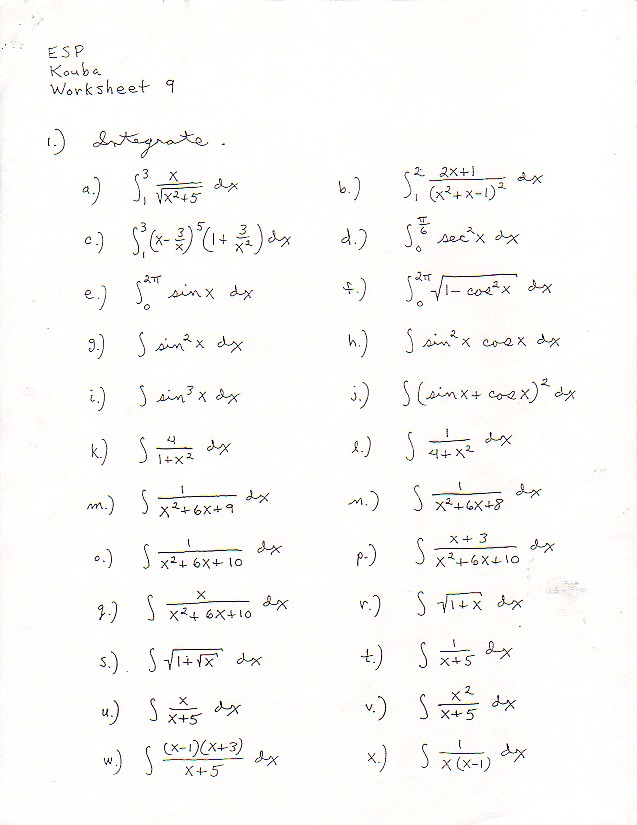 ESP
Kouba
Worksheet 9
1.) Integrate.
a.) ∫₁³ x/√(x²+5) dx b.) ∫₁² (2x+1)/(x²+x-1)² dx
c.) ∫₁³ (x-3/x)⁵(1+3/x²) dx d.) ∫₀^(π/6) sec²x dx
e.) ∫₀^(2π) sinx dx f.) ∫₀^(2π) √(1-cos²x) dx
g.) ∫ sin²x dx h.) ∫ sin²x cosx dx
i.) ∫ sin³x dx j.) ∫ (sinx+cosx)² dx
k.) ∫ 4/(1+x²) dx l.) ∫ 1/(4+x²) dx
m.) ∫ 1/(x²+6x+9) dx n.) ∫ 1/(x²+6x+8) dx
o.) ∫ 1/(x²+6x+10) dx p.) ∫ (x+3)/(x²+6x+10) dx
q.) ∫ x/(x²+6x+10) dx r.) ∫ √(1+x) dx
s.) ∫ √(1+√x) dx t.) ∫ 1/(x+5) dx
u.) ∫ x/(x+5) dx v.) ∫ x²/(x+5) dx
w.) ∫ (x-1)(x+3)/(x+5) dx x.) ∫ 1/(x(x-1)) dx